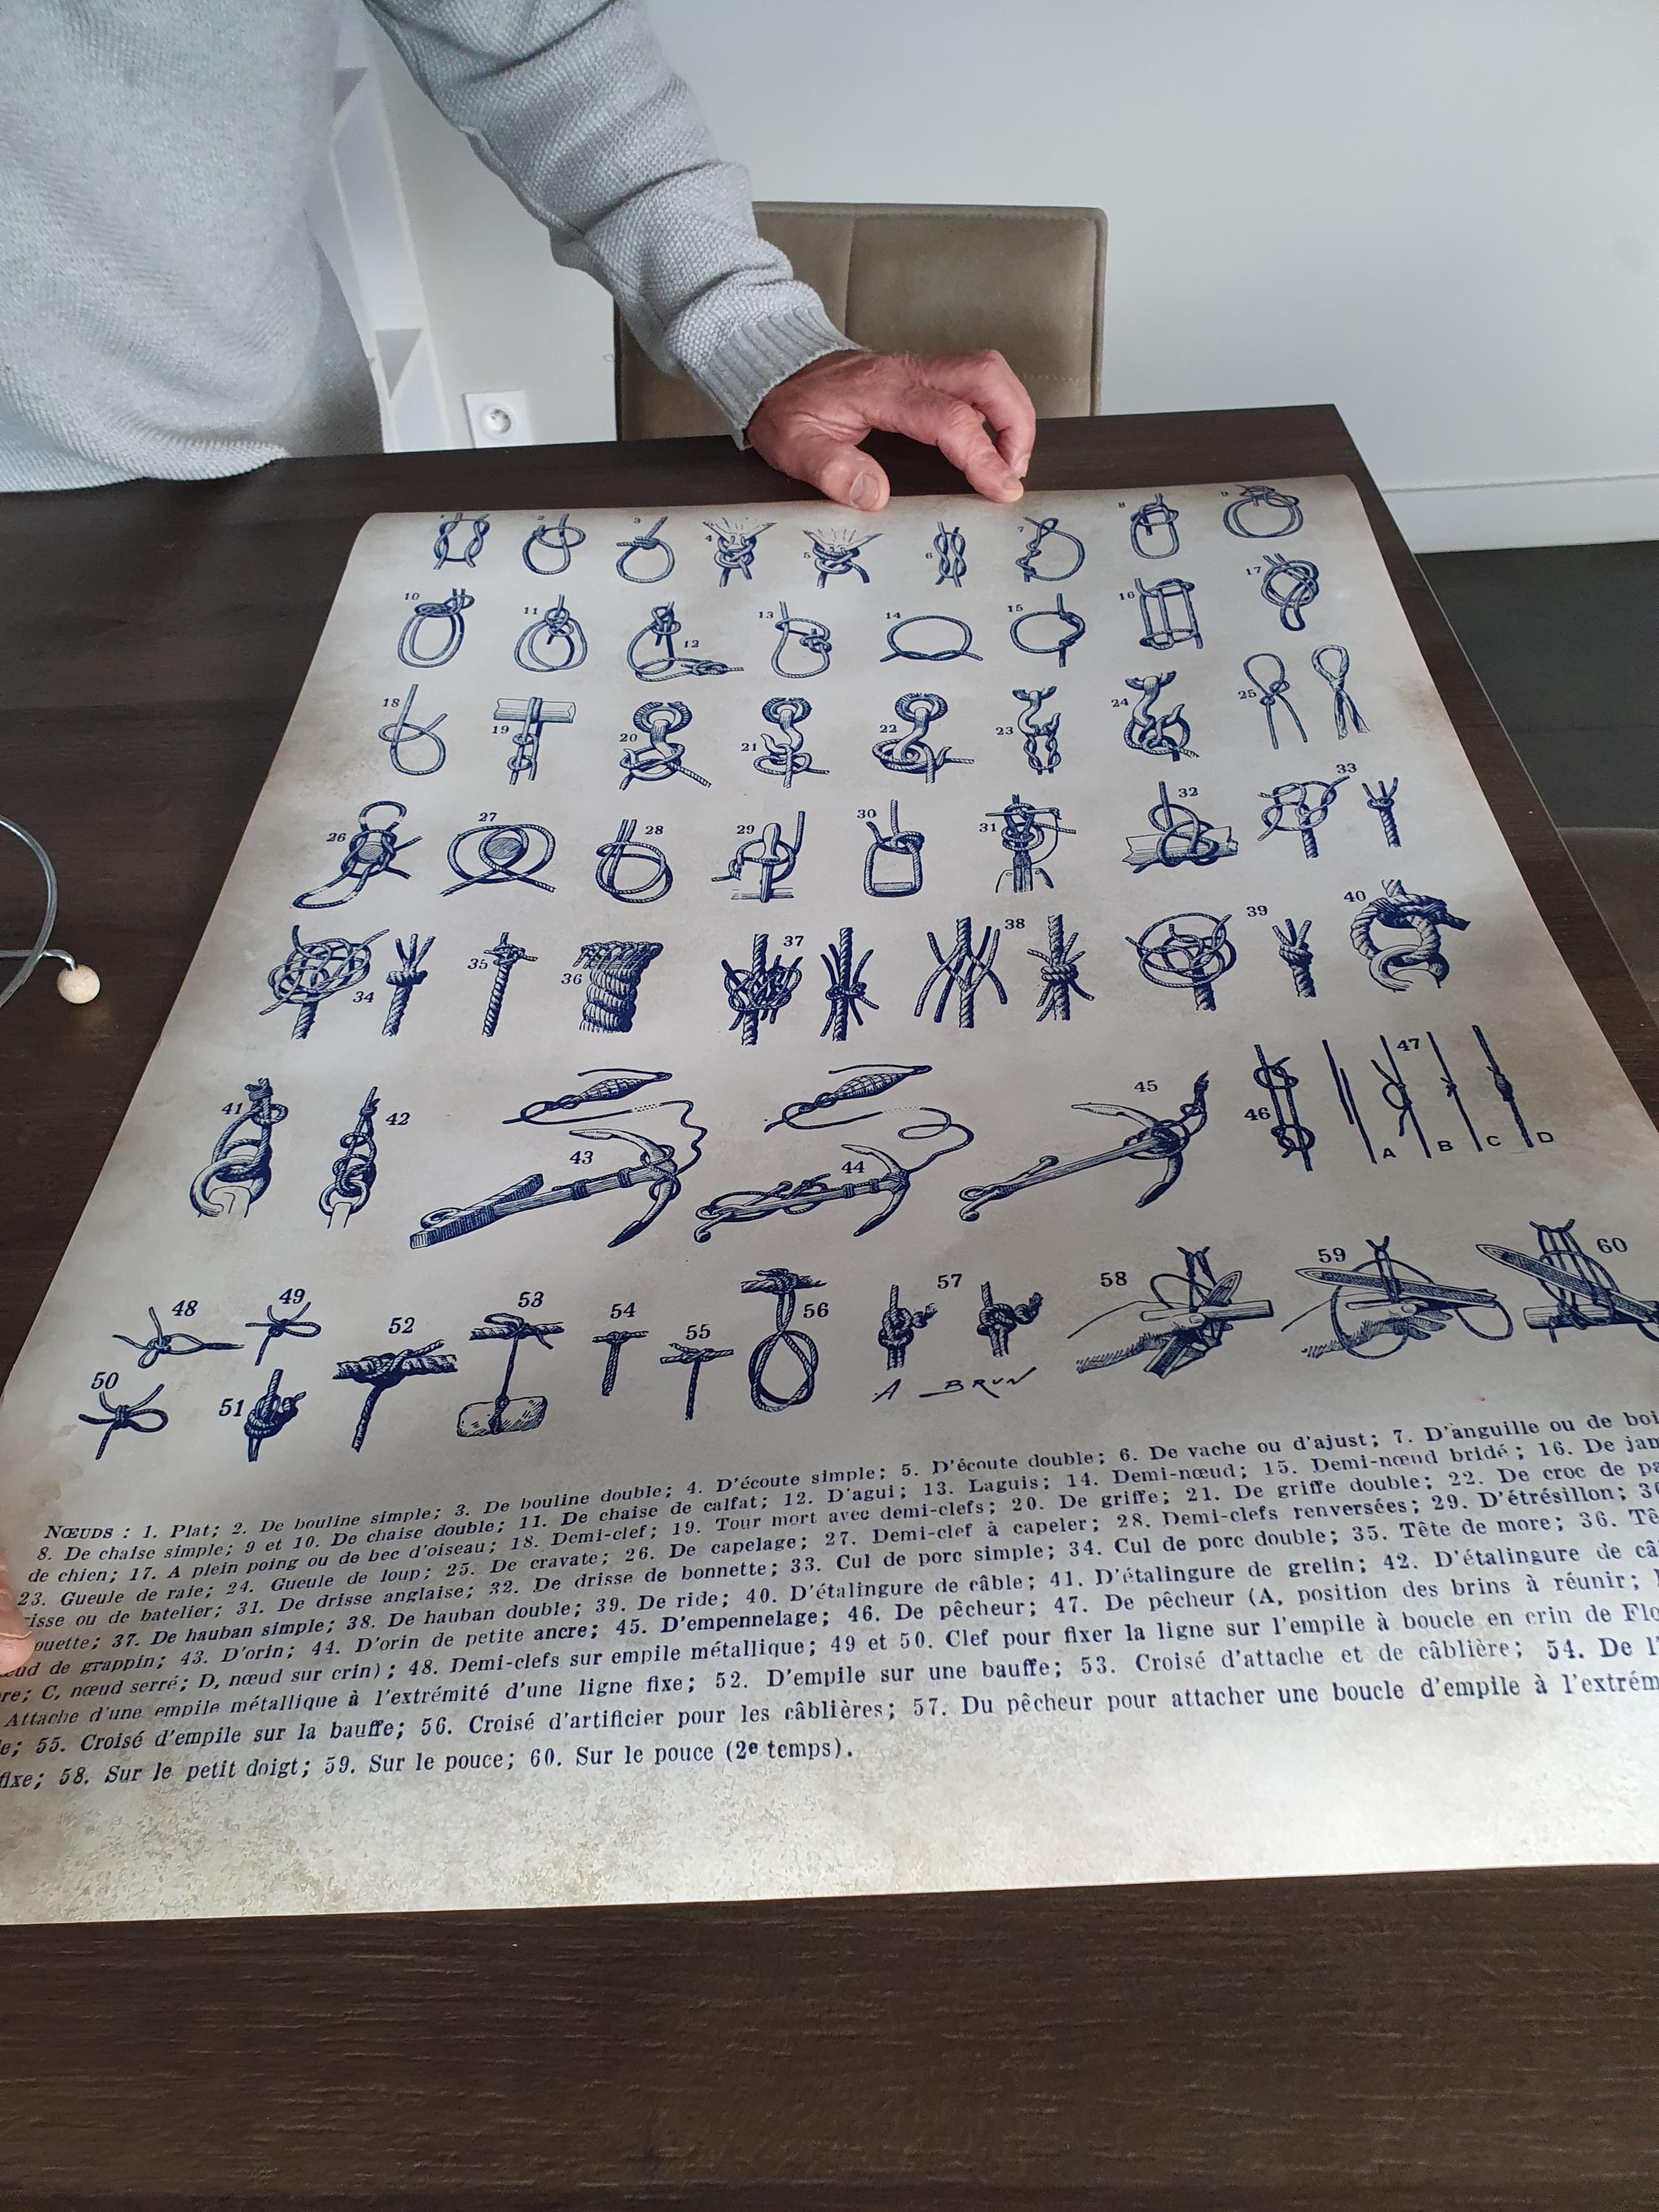 1 2 3 4 5 6 7 8 9
10 11 12 13 14 15 16 17
18 19 20 21 22 23 24 25
26 27 28 29 30 31 32 33
34 35 36 37 38 39 40
41 42 43 44 45 46 47
A B C D
48 49 52 53 54 55 56 57 58 59 60
50 51
A BRUN
NŒUDS : 1. Plat; 2. De bouline simple; 3. De bouline double; 4. D'écoute simple; 5. D'écoute double; 6. De vache ou d'ajust; 7. D'anguille ou de
8. De chaise simple; 9 et 10. De chaise double; 11. De chaise de calfat; 12. D'agui; 13. Laguis; 14. Demi-nœud; 15. Demi-nœud bridé; 16. De
de chien; 17. A plein poing ou de bec d'oiseau; 18. Demi-clef; 19. Tour mort avec demi-clefs; 20. De griffe; 21. De griffe double; 22. De croc de
23. Gueule de raie; 24. Gueule de loup; 25. De cravate; 26. De capelage; 27. Demi-clef à capeler; 28. Demi-clefs renversées; 29. D'étrésillon;
ou de batelier; 31. De drisse anglaise; 32. De drisse de bonnette; 33. Cul de porc simple; 34. Cul de porc double; 35. Tête de more; 36.
37. De hauban simple; 38. De hauban double; 39. De ride; 40. D'étalingure de câble; 41. D'étalingure de grelin; 42. D'étalingure de
de grappin; 43. D'orin; 44. D'orin de petite ancre; 45. D'empennelage; 46. De pêcheur; 47. De pêcheur (A, position des brins à réunir;
C, nœud serré; D, nœud sur crin); 48. Demi-clefs sur empile métallique; 49 et 50. Clef pour fixer la ligne sur l'empile à boucle en crin de
Attache d'une empile métallique à l'extrémité d'une ligne fixe; 52. D'empile sur une bauffe; 53. Croisé d'attache et de câblière; 54. De
55. Croisé d'empile sur la bauffe; 56. Croisé d'artificier pour les câblières; 57. Du pêcheur pour attacher une boucle d'empile à
fixe; 58. Sur le petit doigt; 59. Sur le pouce; 60. Sur le pouce (2e temps).